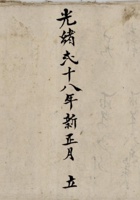 光緒弍十八年新正月 立